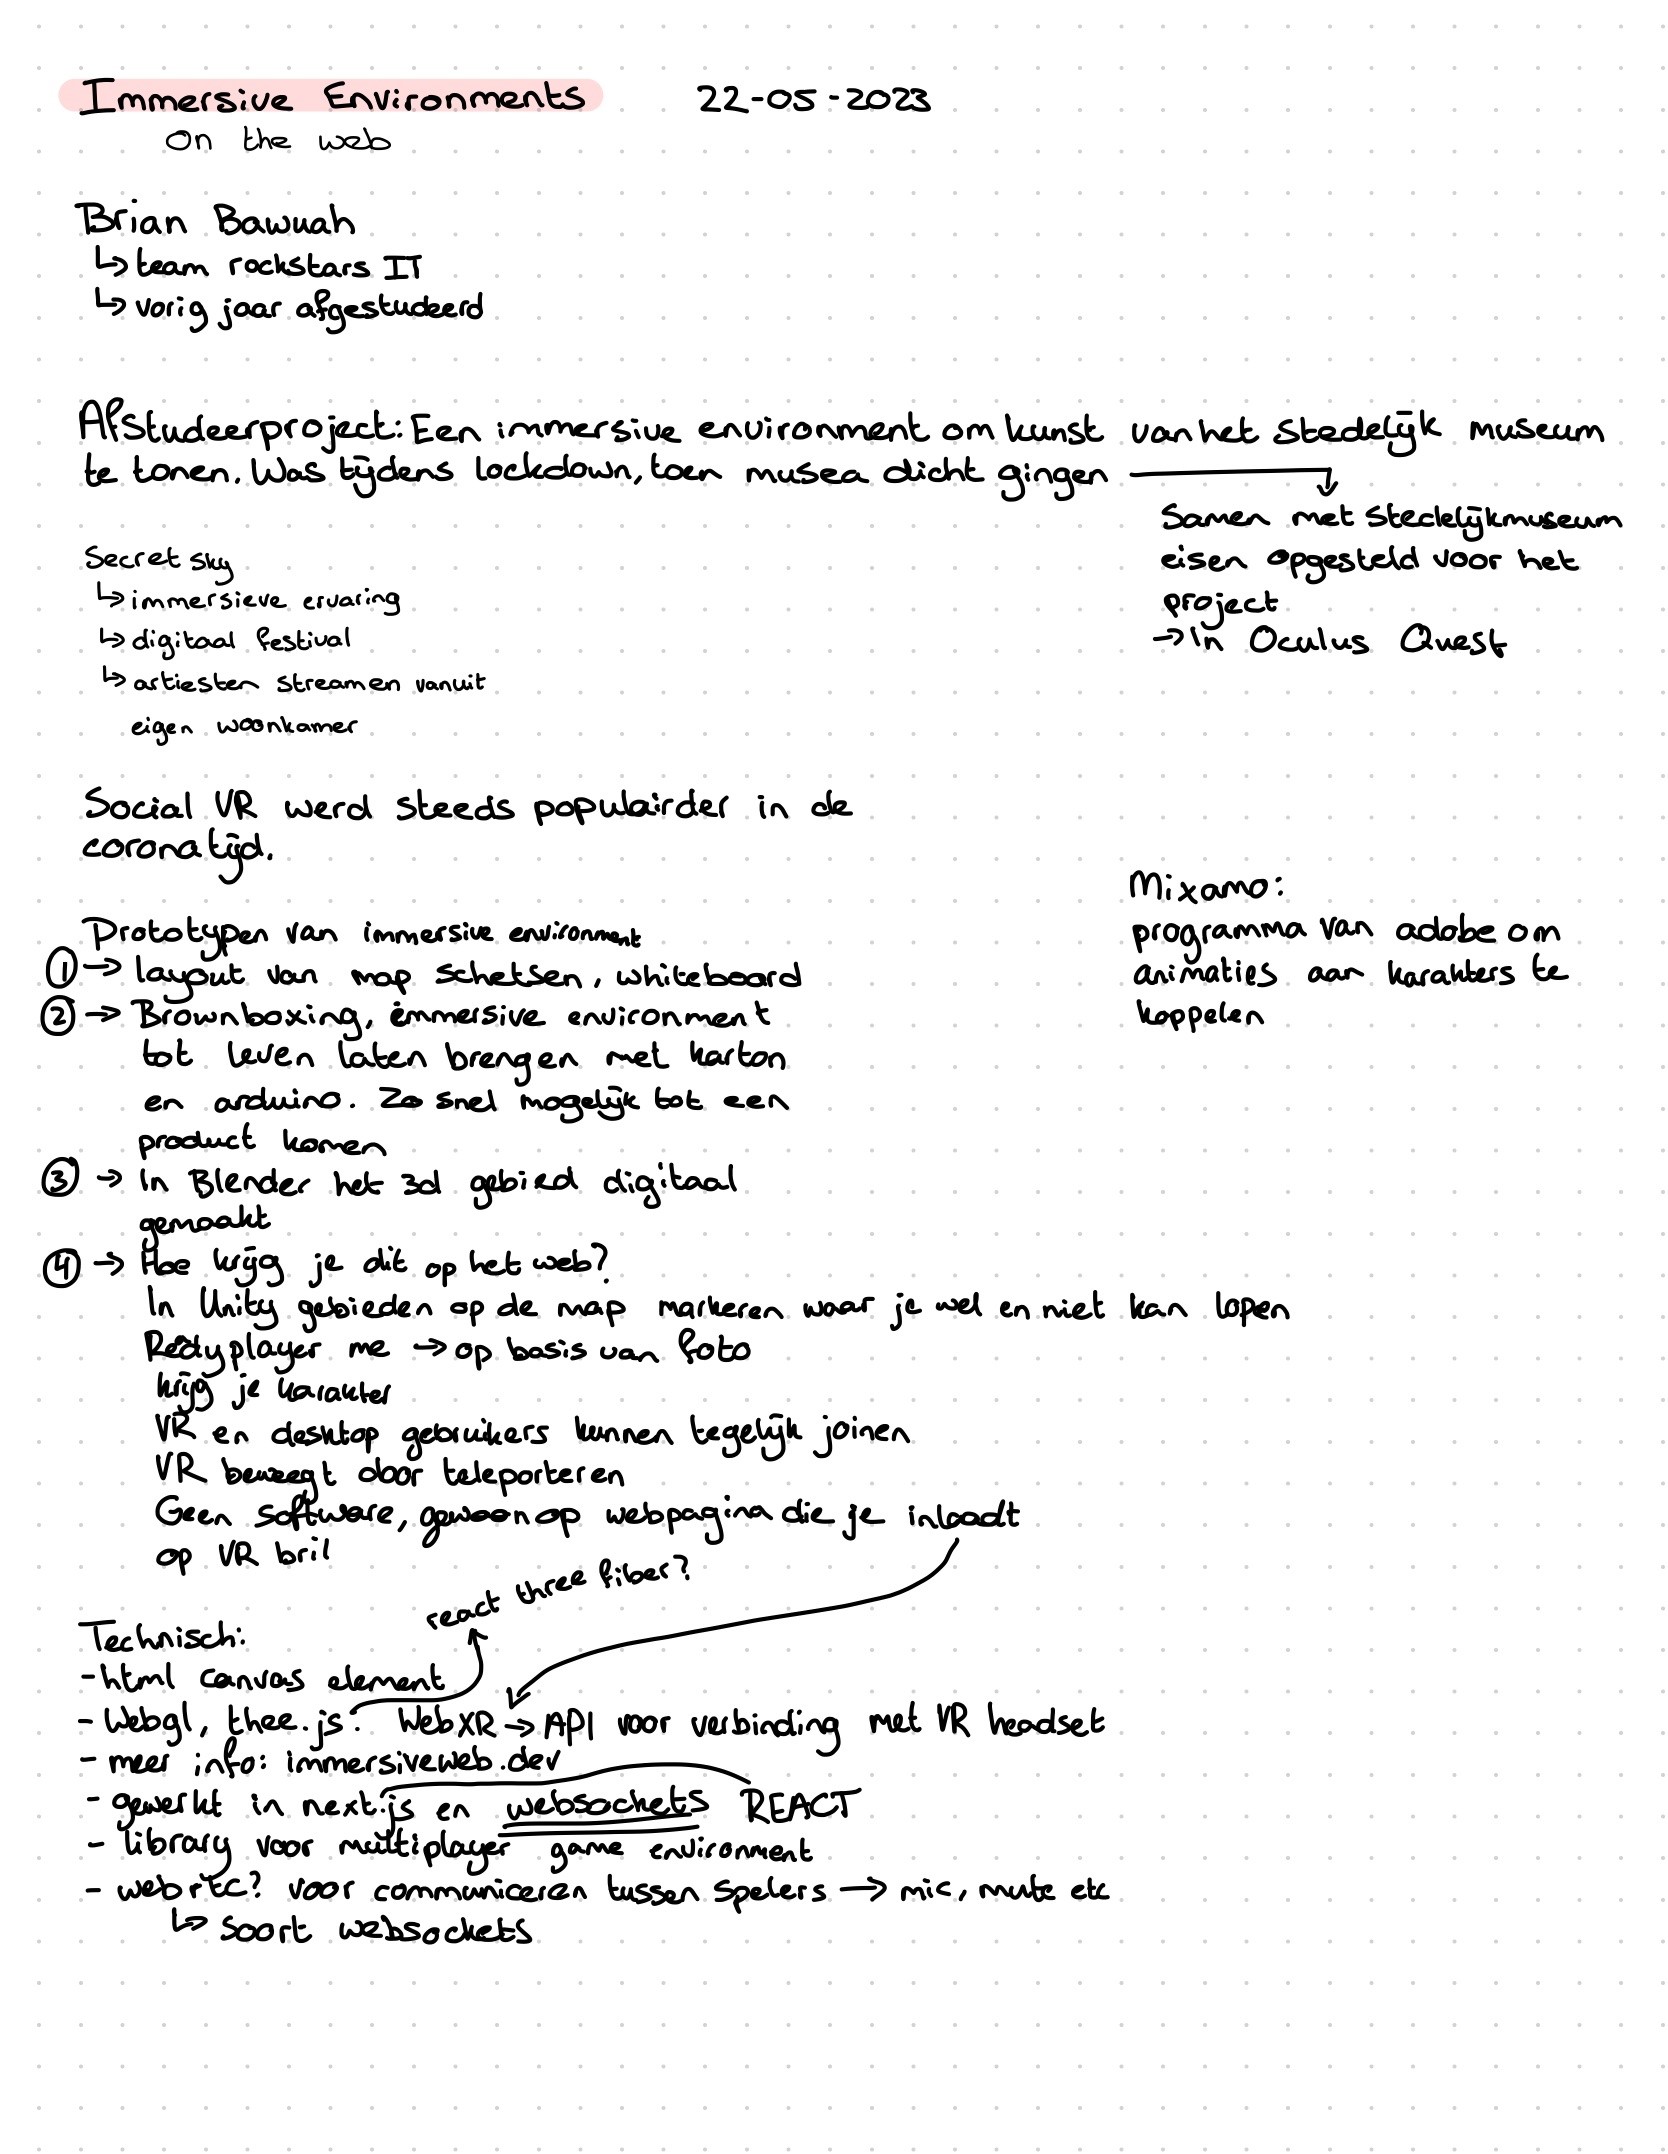 Immersive Environments 22-05-2023
On the web
Brian Bawuah
↳ team rockstars IT
↳ vorig jaar afgestudeerd
Afstudeerproject: Een immersive environment om kunst van het stedelijk museum
te tonen. Was tijdens lockdown, toen musea dicht gingen →
Samen met stedelijkmuseum
eisen opgesteld voor het
project
→ In Oculus Quest
Secret sky
↳ immersieve ervaring
↳ digitaal festival
↳ artiesten streamen vanuit
eigen woonkamer
Social VR werd steeds populairder in de
coronatijd.
Mixamo:
programma van adobe om
animaties aan karakters te
koppelen
Prototypen van immersive environment
① → layout van map schetsen, whiteboard
② → Brownboxing, immersive environment
tot leven laten brengen met karton
en arduino. Zo snel mogelijk tot een
product komen
③ → In Blender het 3d gebied digitaal
gemaakt
④ → Hoe krijg je dit op het web?
In Unity gebieden op de map markeren waar je wel en niet kan lopen
Redyplayer me → op basis van foto
krijg je karakter
VR en desktop gebruikers kunnen tegelijk joinen
VR beweegt door teleporteren
Geen software, gewoon op webpagina die je inlaadt
op VR bril
react three fiber?
Technisch:
- html canvas element
- Webgl, thee.js. WebXR → API voor verbinding met VR headset
- meer info: immersiveweb.dev
- gewerkt in next.js en websockets REACT
- library voor multiplayer game environment
- webrtc? voor communiceren tussen spelers → mic, mute etc
↳ soort websockets